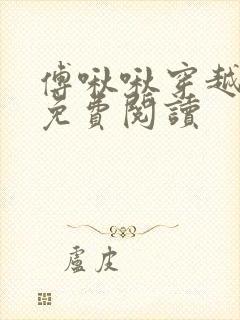 傅啾啾穿越
免費閱讀
盧皮